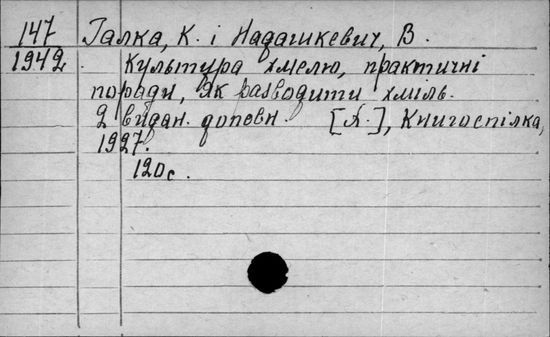 147 Галка, К. і Надашкевич, В.
1942 Культура хмелю, практичні
поради, як разводити хміль.
2 видан. доповн. [Х.], Книгоспілка,
1927.
120 с.